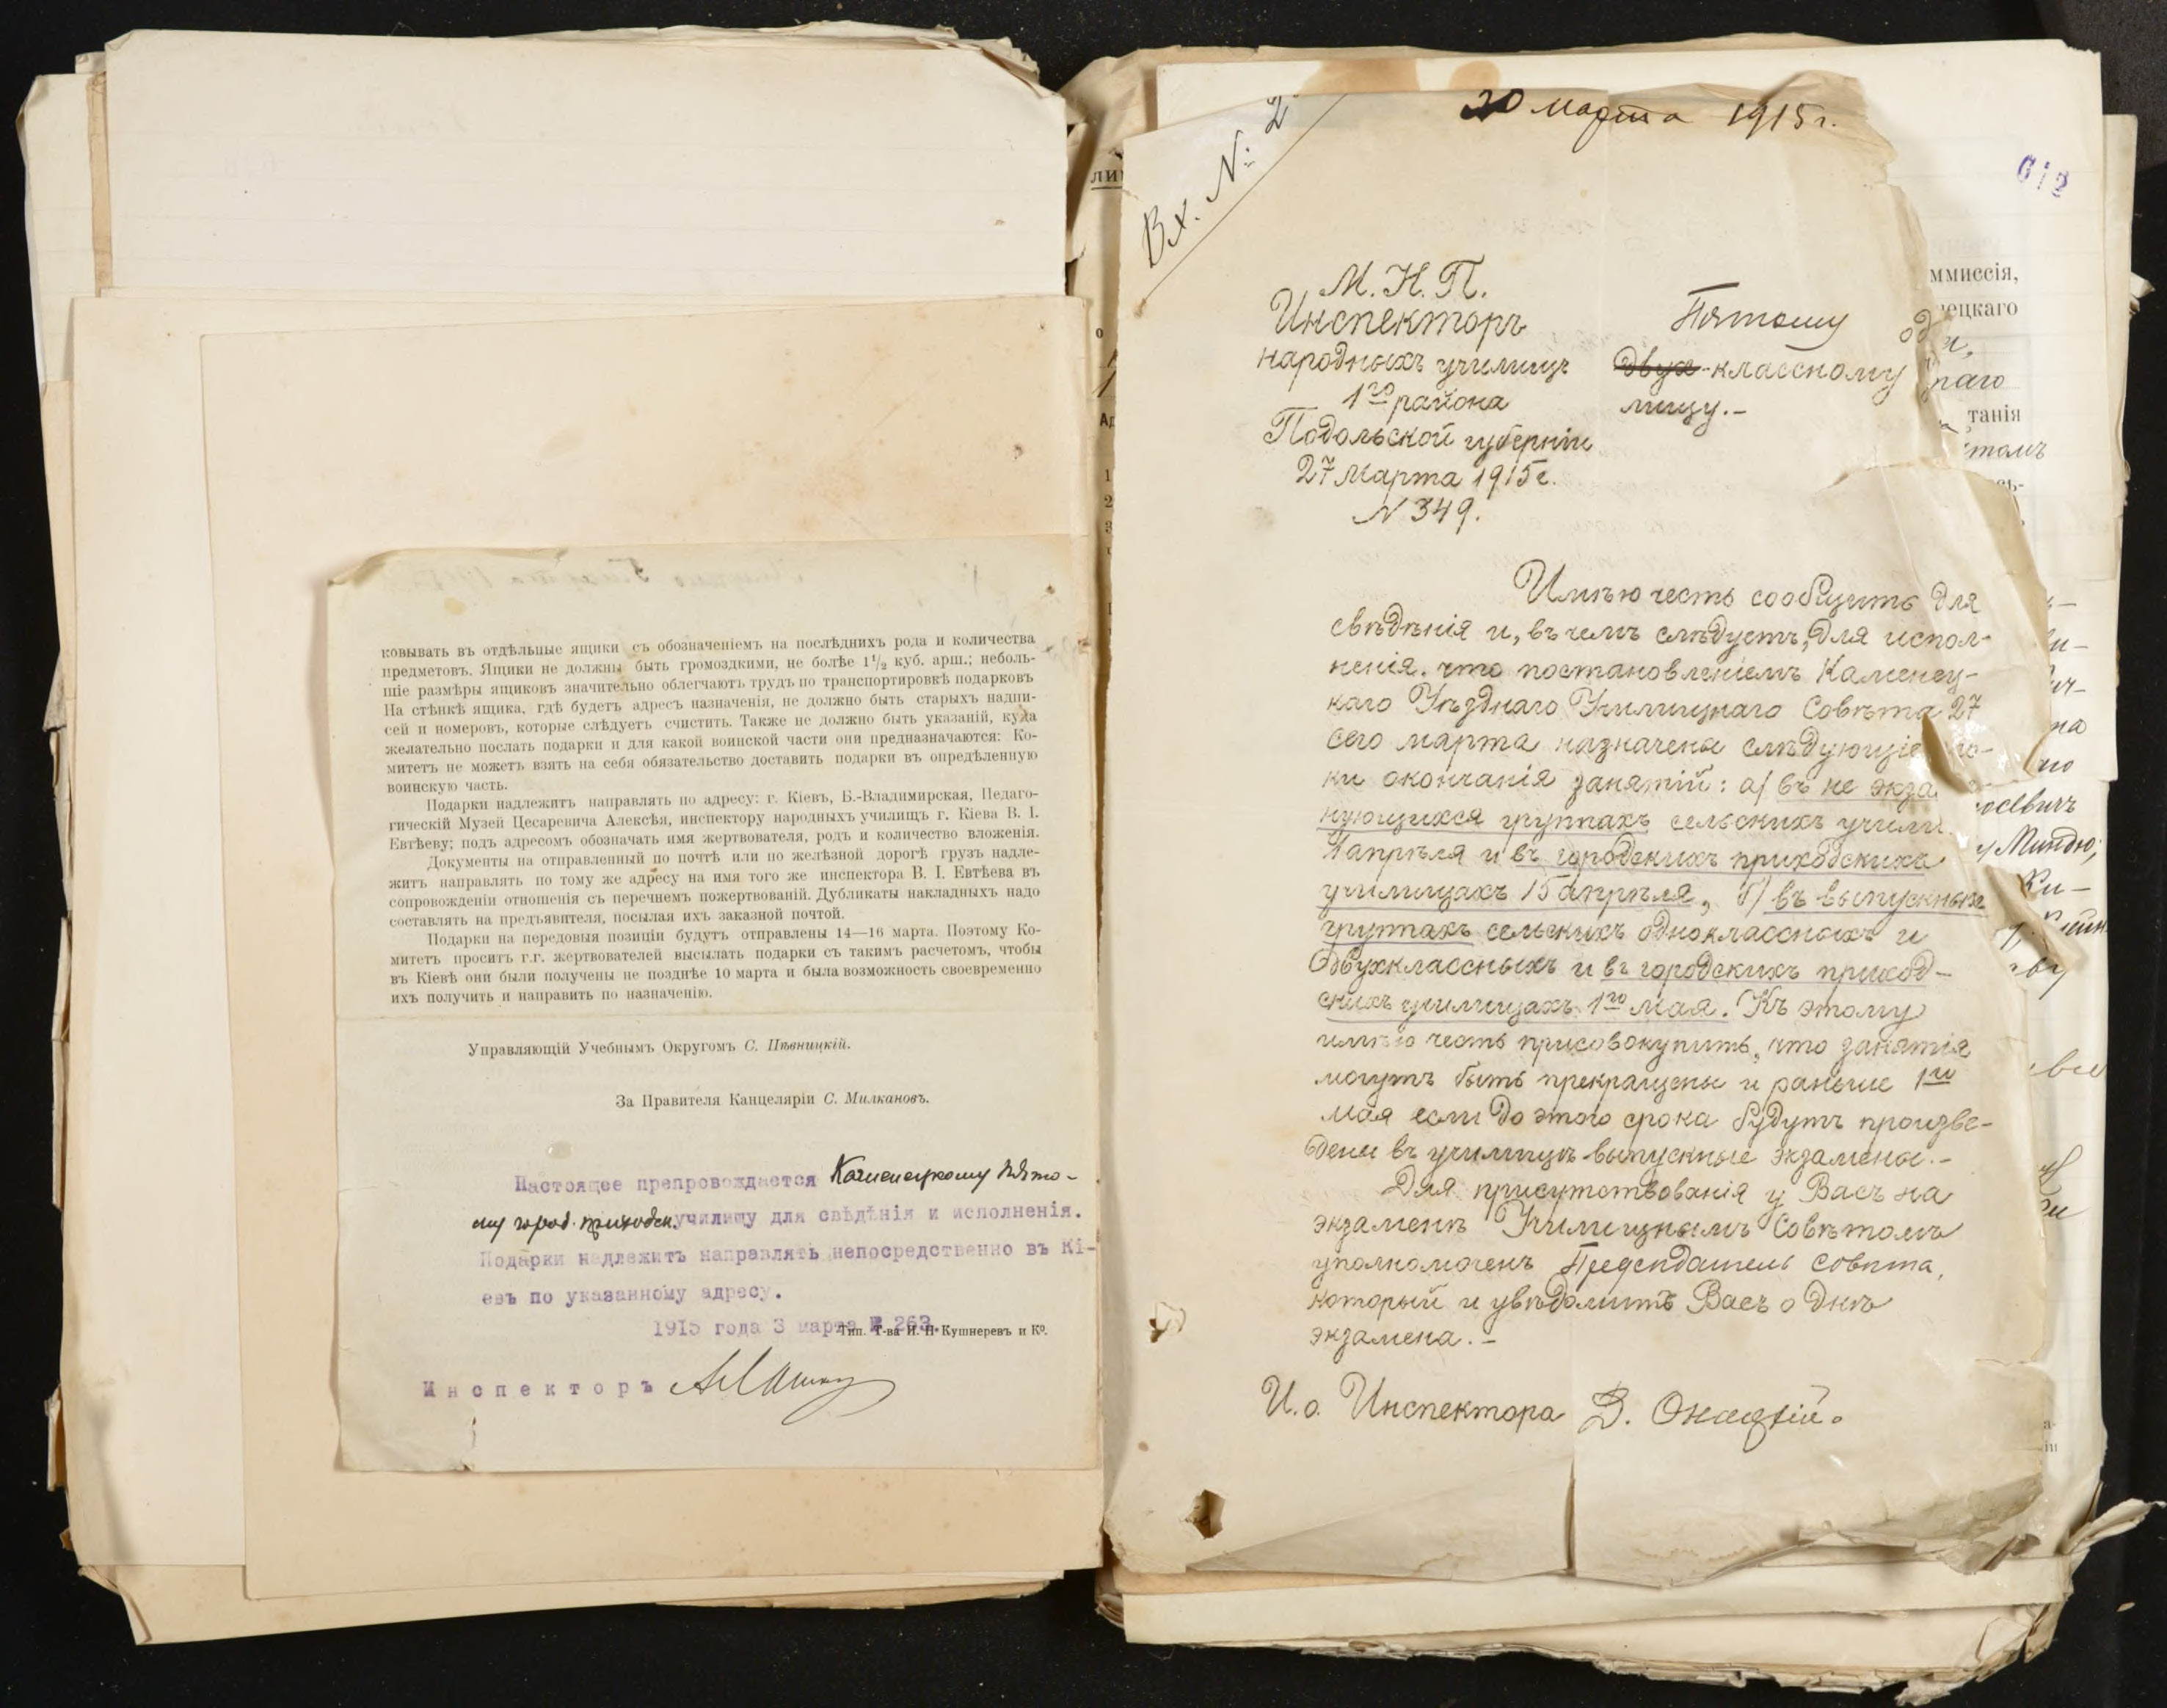 ковывать въ отдѣльные ящики съ обозначеніемъ на послѣднихъ рода и количества
предметовъ. Ящики не должны быть громоздкими, не болѣе 1¹/₂ куб. арш.; неболь-
шіе размѣры ящиковъ значительно облегчаютъ трудъ по транспортировкѣ подарковъ
На стѣнкѣ ящика, гдѣ будетъ адресъ назначенія, не должно быть старыхъ надпи-
сей и номеровъ, которые слѣдуетъ счистить. Также не должно быть указаній, куда
желательно послать подарки и для какой воинской части они предназначаются: Ко-
митетъ не можетъ взять на себя обязательство доставить подарки въ опредѣленную
воинскую часть.
Подарки надлежитъ направлять по адресу: г. Кіевъ, Б.-Владимирская, Педаго-
гическій Музей Цесаревича Алексѣя, инспектору народныхъ училищъ г. Кіева В. І.
Евтѣеву; подъ адресомъ обозначать имя жертвователя, родъ и количество вложенія.
Документы на отправленный по почтѣ или по желѣзной дорогѣ грузъ надле-
житъ направлять по тому же адресу на имя того же инспектора В. І. Евтѣева въ
сопровожденіи отношенія съ перечнемъ пожертвованій. Дубликаты накладныхъ надо
составлять на предъявителя, посылая ихъ заказной почтой.
Подарки на передовыя позиціи будутъ отправлены 14—16 марта. Поэтому Ко-
митетъ проситъ г.г. жертвователей высылать подарки съ такимъ расчетомъ, чтобы
въ Кіевѣ они были получены не позднѣе 10 марта и была возможность своевременно
ихъ получить и направить по назначенію.
Управляющій Учебнымъ Округомъ С. Пѣвницкій.
За Правителя Канцеляріи С. Милкановъ.
Настоящее препровождается Каменецкому пято-
му город. приходск. училищу для свѣдѣнія и исполненія.
Подарки надлежитъ направлять непосредственно въ Кі-
евъ по указанному адресу.
1915 года 3 марта № 263.
Тип. Т-ва И. Н. Кушнеревъ и К⁰.
Инспекторъ
Вх. №: 2
20 марта 1915 г.
М. Н. П.
Инспекторъ
народныхъ училищъ
1го района
Подольской губерніи
27 Марта 1915 г.
N 349.
Пятому од
двух-классному
лищу.-
Имѣю честь сообщить для
свѣдѣнія и, въ чемъ слѣдуетъ, для испол-
ненія. что постановленіемъ Каменец-
каго Уѣзднаго Училищнаго Совѣта 27
сего марта назначены слѣдующіе
ки окончанія занятій: а) въ не экза
нующихся группахъ сельскихъ учили
апрѣля и въ городскихъ приходскихъ
училищахъ 15 апрѣля, б) въ выпускныхъ
группахъ сельскихъ одноклассныхъ и
двухклассныхъ и въ городскихъ приход-
скихъ училищахъ 1го мая. Къ этому
имѣю честь присовокупить, что занятія
могутъ быть прекращены и раньше 1го
мая если до этого срока будутъ произве-
дены въ училищѣ выпускные экзамены.-
Для присутствованія у Васъ на
экзаменѣ Училищнымъ Совѣтомъ
уполномоченъ Предсѣдатель Совѣта,
который и увѣдомитъ Васъ о днѣ
экзамена.-
И. о. Инспектора
ммиссія,
ецкаго
танія